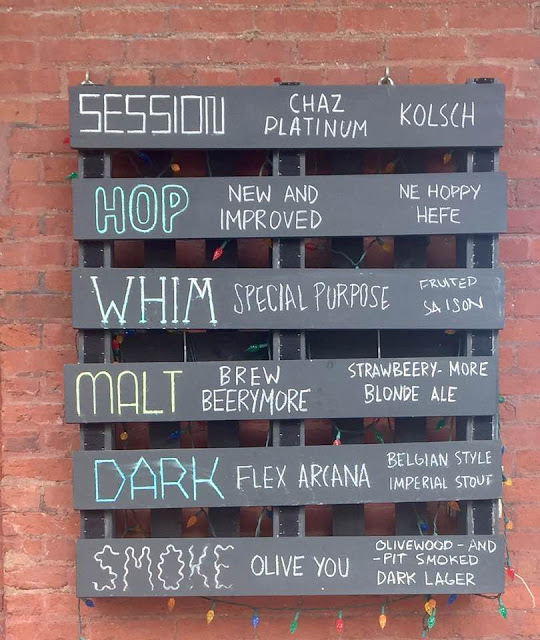 SESSION CHAZ PLATINUM KOLSCH
HOP NEW AND IMPROVED NE HOPPY HEFE
WHIM SPECIAL PURPOSE FRUITED SAISON
MALT BREW BEERYMORE STRAWBEERY-MORE BLONDE ALE
DARK FLEX ARCANA BELGIAN STYLE IMPERIAL STOUT
SMOKE OLIVE YOU OLIVEWOOD-AND -PIT SMOKED DARK LAGER